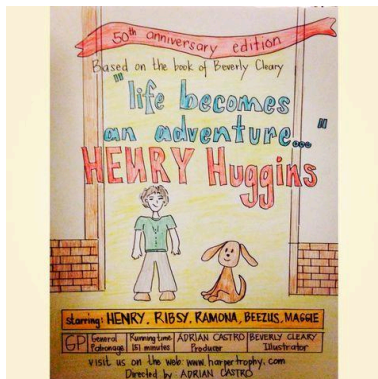 50th anniversary edition
Based on the book of Beverly Cleary
"life becomes
an adventure..."
HENRY Huggins
starring: HENRY, RIBSY, RAMONA, BEEZUS, MAGGIE
GP General Patronage Running time 151 minutes ADRIAN CASTRO Producer BEVERLY CLEARY Illustrator
visit us on the web: www.harpertrophy.com
Directed by ADRIAN CASTRO